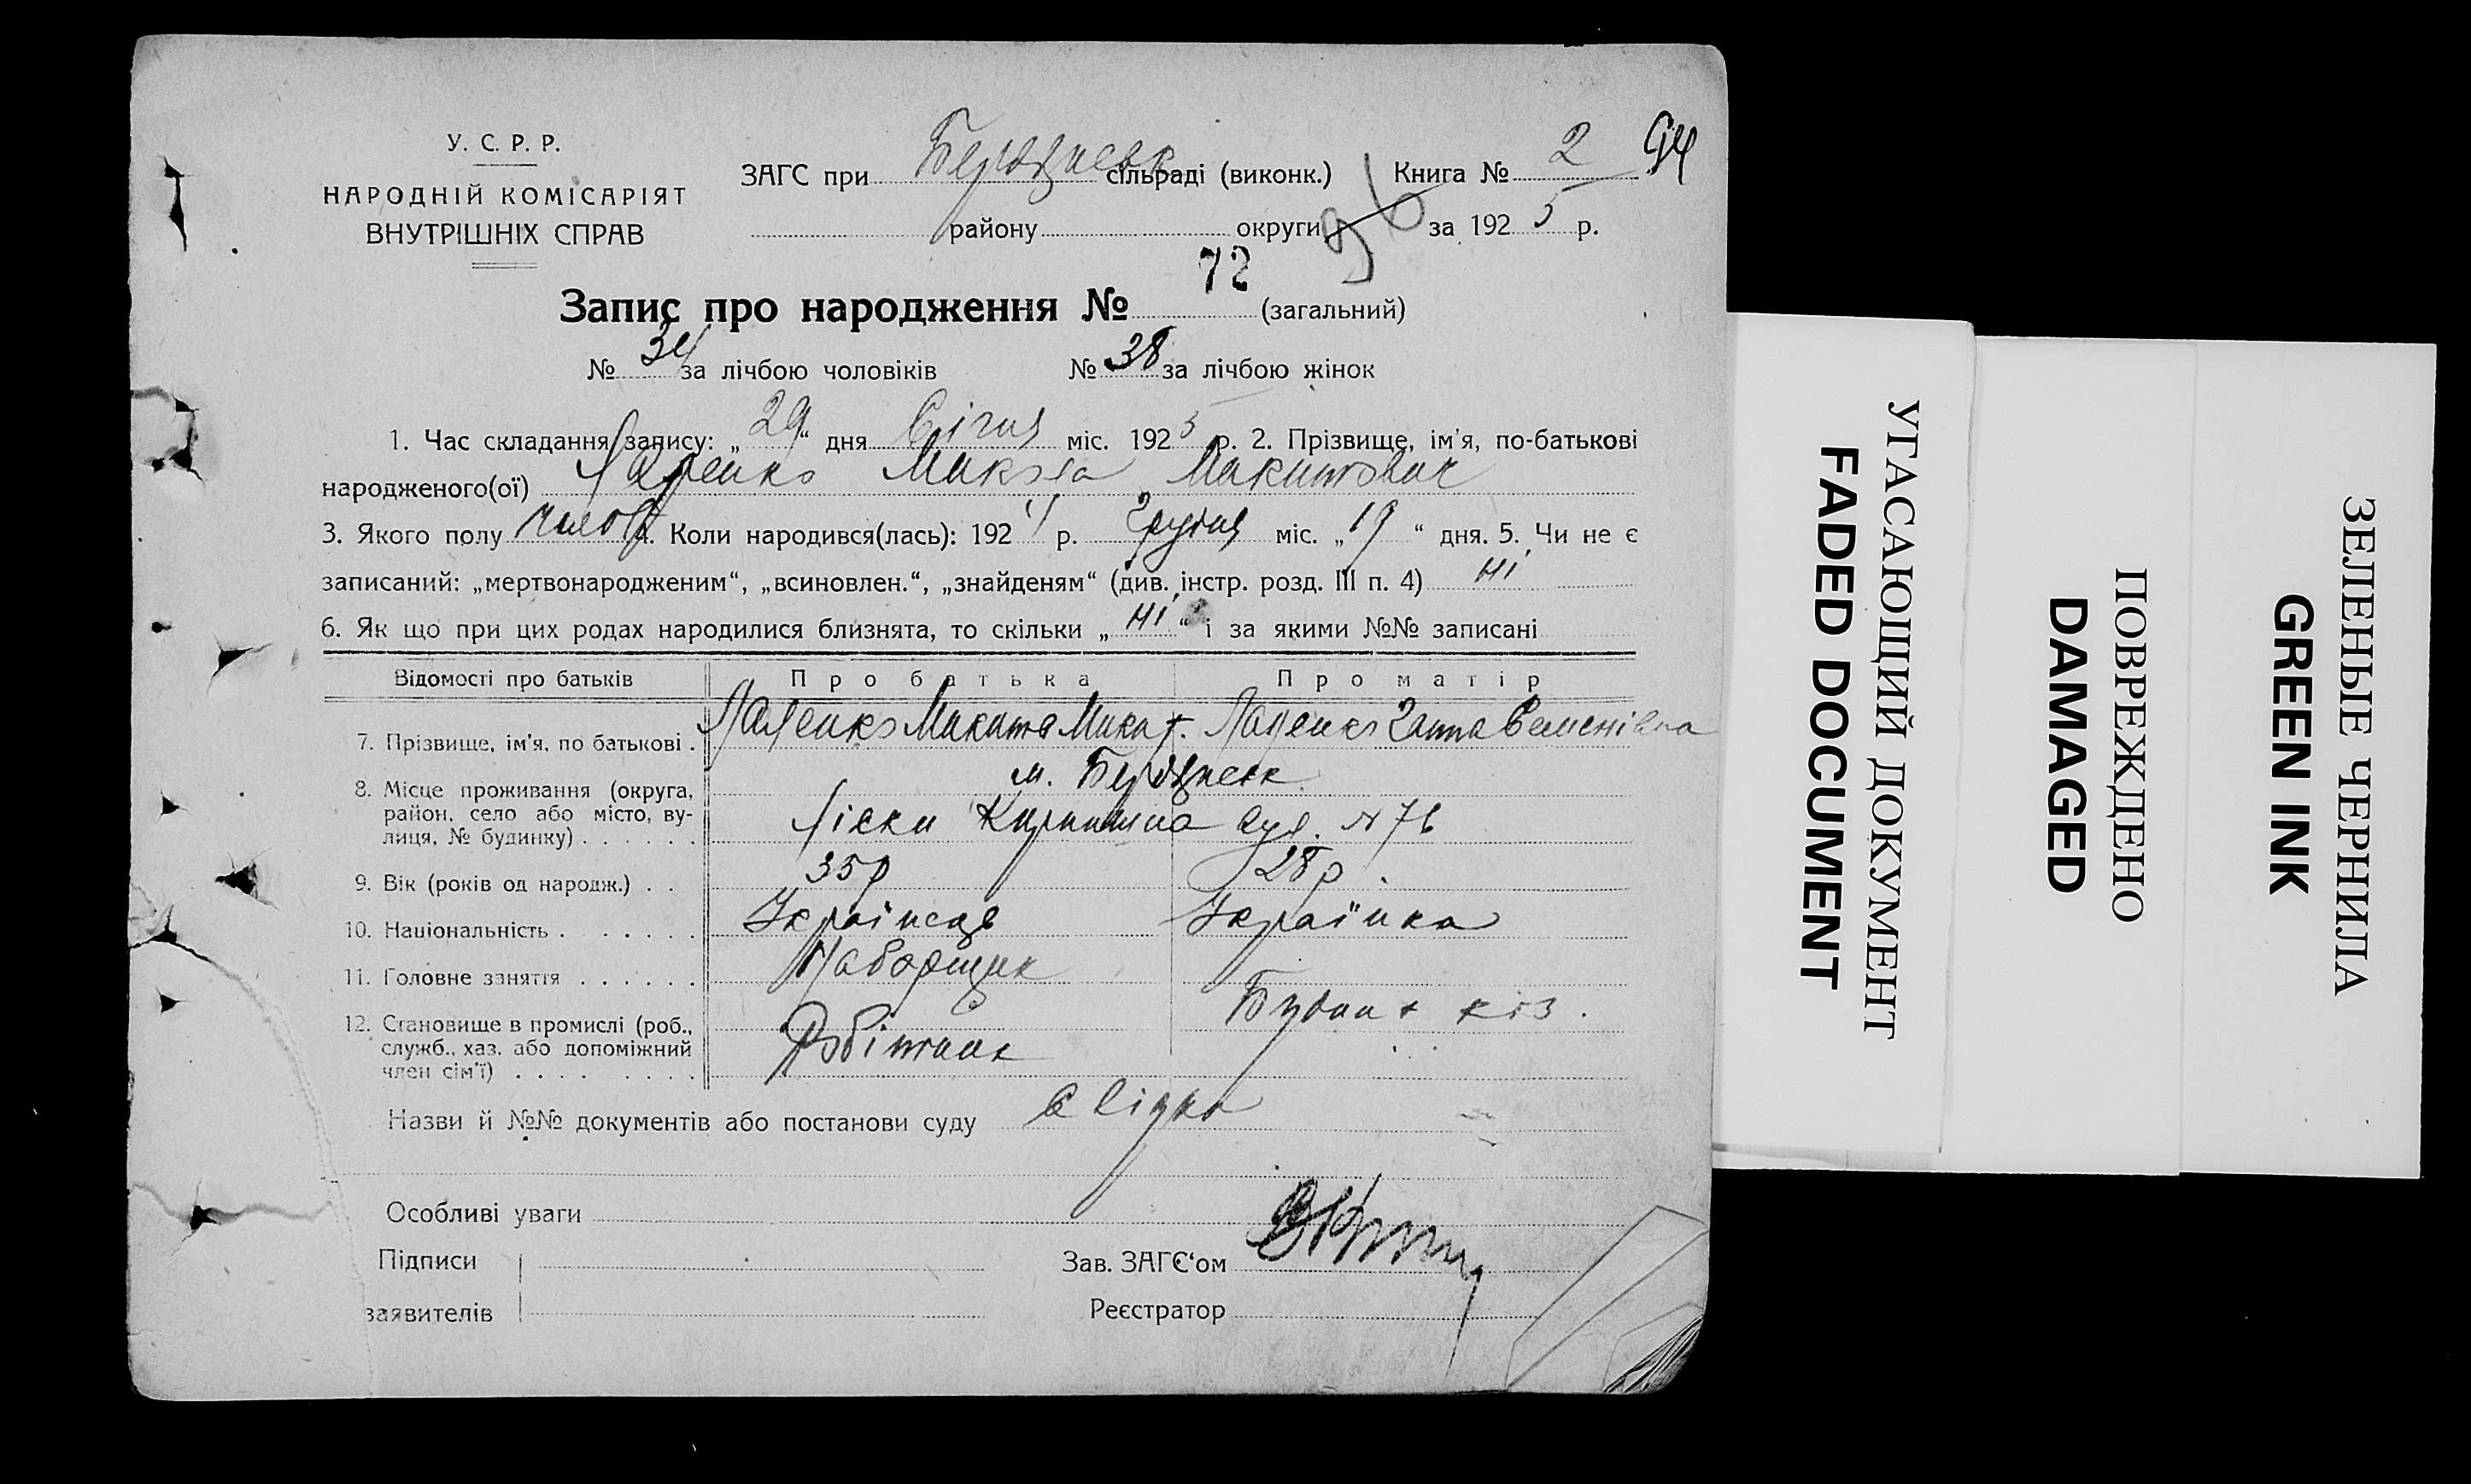 У. С. Р. Р.
НАРОДНІЙ КОМІСАРІЯТ
ВНУТРІШНІХ СПРАВ
ЗАГС при Бердянськ сільраді (виконк.) Книга № 2 94
району округи 96 за 1925 р.
Запис про народження № 72 (загальний)
№ 34 за лічбою чоловіків № 38 за лічбою жінок
1. Час складання запису: „29“ дня Січня міс. 1925 р. 2. Прізвище, ім'я, по-батькові
народженого(ої) Микола Микитович
3. Якого полу чолов 4. Коли народився(лась): 1924 р. Грудня міс. „19“ дня. 5. Чи не є
записаний: „мертвонародженим“, „всиновлен.“, „знайденям“ (див. інстр. розд. III п. 4) ні
6. Як що при цих родах народилися близнята, то скільки „ні“ і за якими №№ записані
Відомості про батьків Про батька Про матір
7. Прізвище, ім'я, по батькові . Микита Семенівна
м. Бердянськ
8. Місце проживання (округа,
район, село або місто, ву-
лиця, № будинку) . . . . . . Ліски вул. №
9. Вік (років од народж.) . . 35р 28р.
10. Національність . . . . . . . Українець Українка
11. Головне заняття . . . . . . Наборщик
12. Становище в промислі (роб.,
служб., хаз. або допоміжний
член сім'ї) . . . . . . . . Робітник
Назви й №№ документів або постанови суду
Особливі уваги
Підписи
заявителів
Зав. ЗАГС‘ом
Реєстратор
УГАСАЮЩИЙ ДОКУМЕНТ
FADED DOCUMENT
ПОВРЕЖДЕНО
DAMAGED
ЗЕЛЕНЫЕ ЧЕРНИЛА
GREEN INK